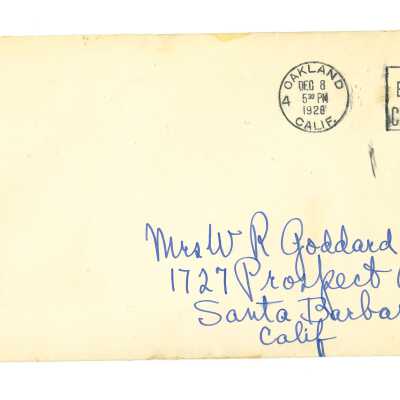 OAKLAND
DEC 8
5 30 PM
1928
4
CALIF.
Mrs W R Goddard
1727 Prospect
Santa Barba
Calif